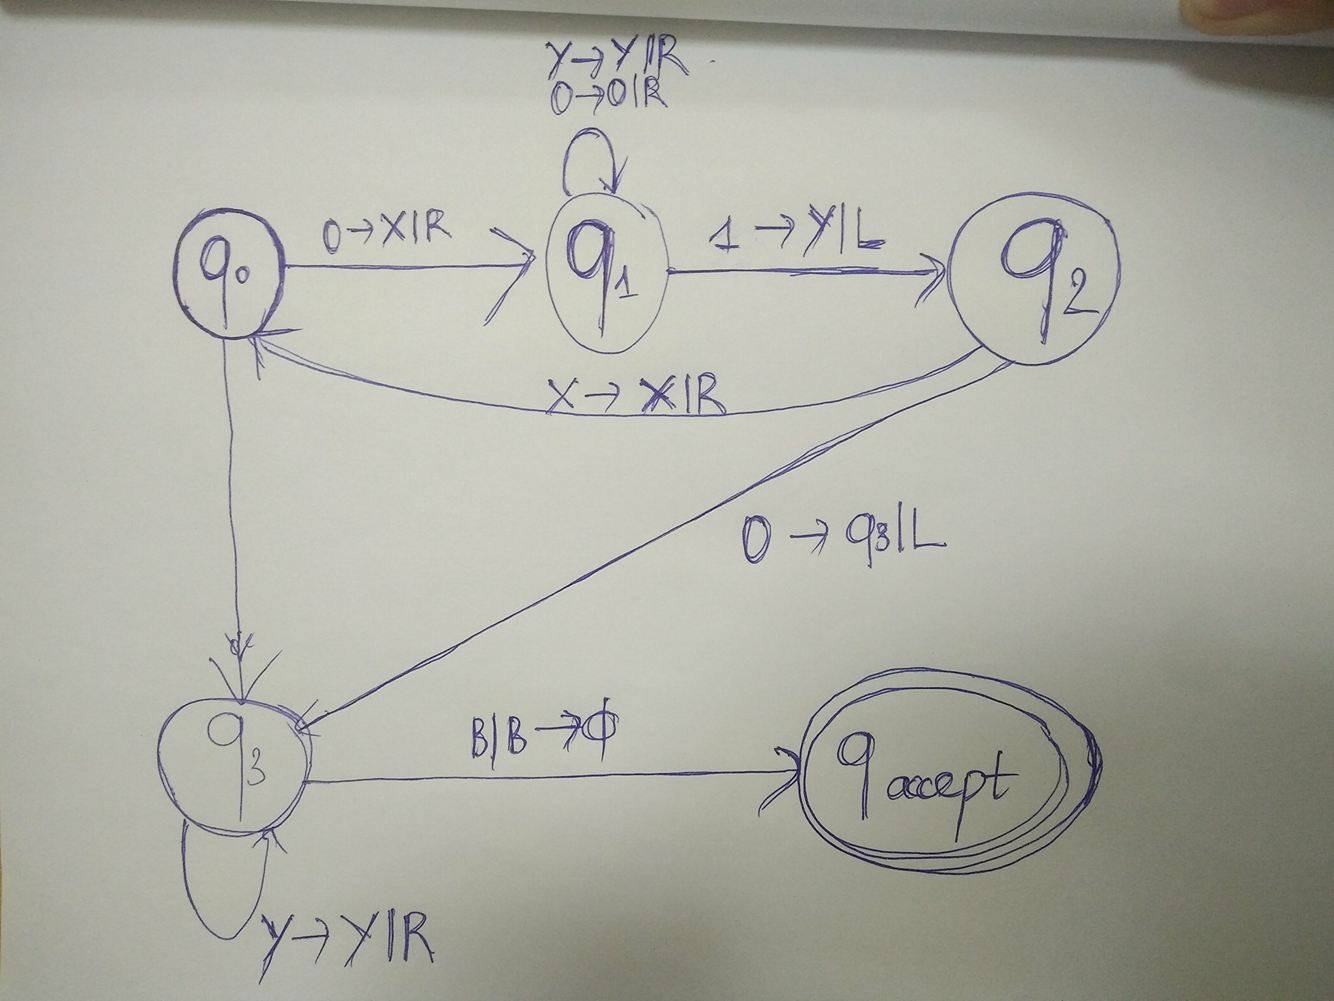 Y→Y|R
0→0|R
q0
0→X|R
q1
1→Y|L
q2
X→X|R
0→q3|L
q3
B|B→ϕ
q accept
Y→Y|R